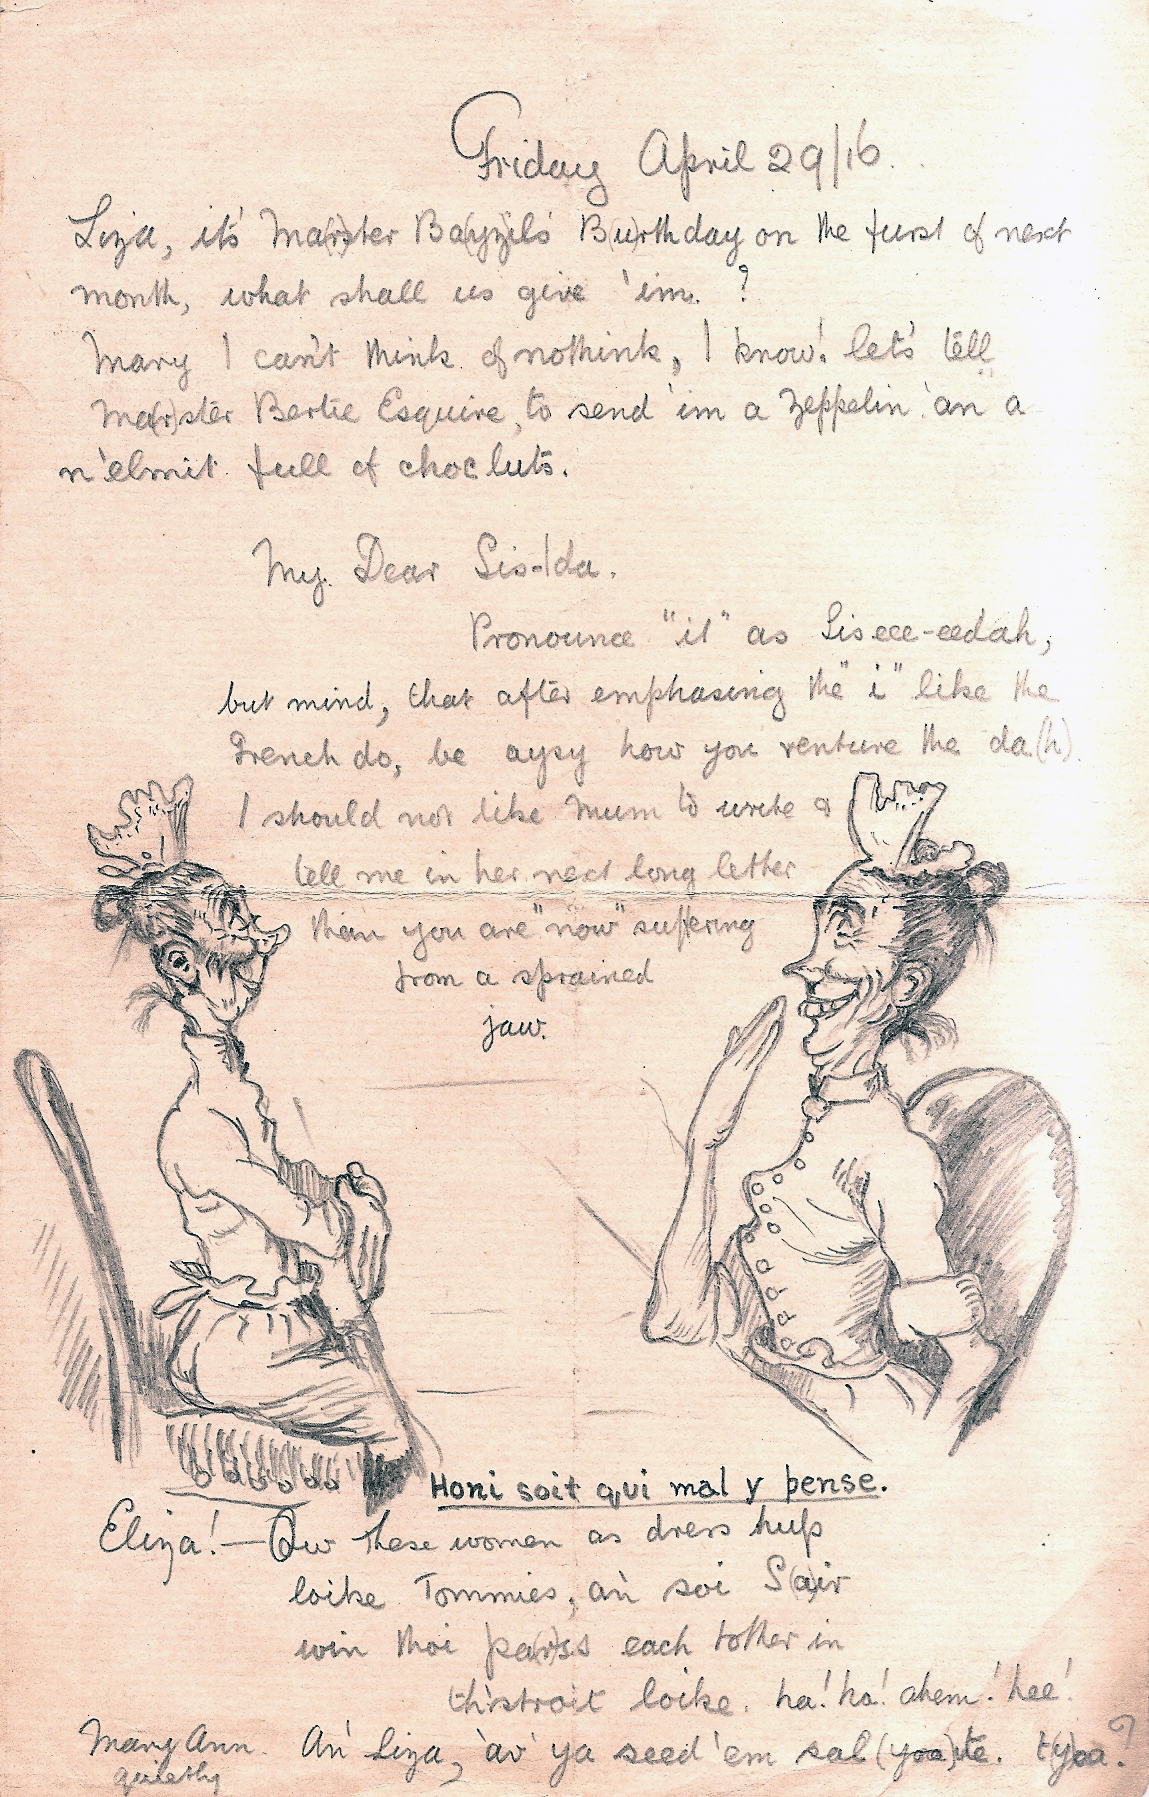 Friday April 29/16.
Liza, it's Ma(r)ster Ba(y)zil's B(u)rthday on the furst of next
month, what shall us give 'im. ?
Mary I can't think of nothink, I know! let's tell
Ma(r)ster Bertie Esquire, to send 'im a Zeppelin 'an a
n'elmit full of choc luts.
My Dear Sis-Ida.
Pronounce "it" as Siseee-eedah,
but mind, that after emphasing the "i" like the
French do, be aysy how you venture the da(h).
I should not like Mum to write &
tell me in her next long letter
than you are "now" suffering
from a sprained
jaw.
Honi soit qui mal y pense.
Eliza! — Ow these women as dress hup
loike Tommies, an' soi S(a)ir
win thoi pa(r)ss each tother in
th'stroit loike. ha! ha! ahem! hee!
Mary Ann An' Liza, 'av' ya seed 'em sal(yoo)te. t(y)oo?
quietly